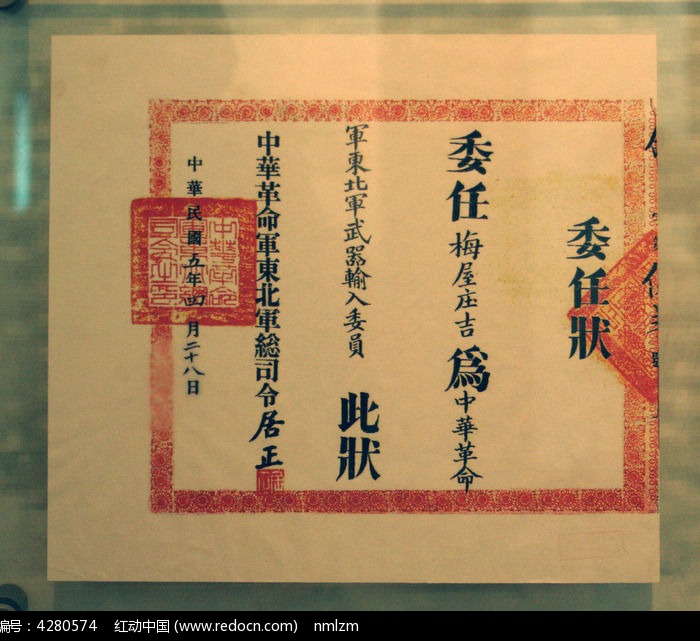 委任狀
委任梅屋庄吉爲中華革命
軍東北軍武器輸入委員
此狀
中華革命軍東北軍総司令居正
中華民國五年四月二十八日
编号：4280574 红动中国 (www.redocn.com) nmlzm